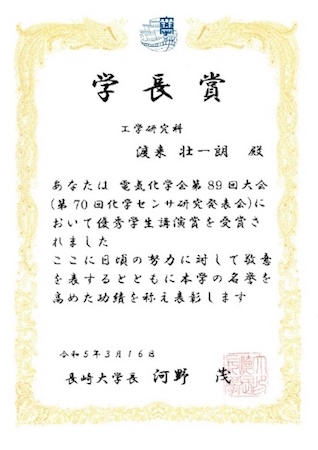 学長賞
工学研究科
渡来 壮一朗 殿
あなたは 電気化学会第89回大会
(第70回化学センサ研究発表会)に
おいて優秀学生講演賞を受賞さ
れました
ここに日頃の努力に対して敬意
を表するとともに本学の名誉を
高めた功績を称え表彰します
令和5年3月16日
長崎大学長 河野 茂